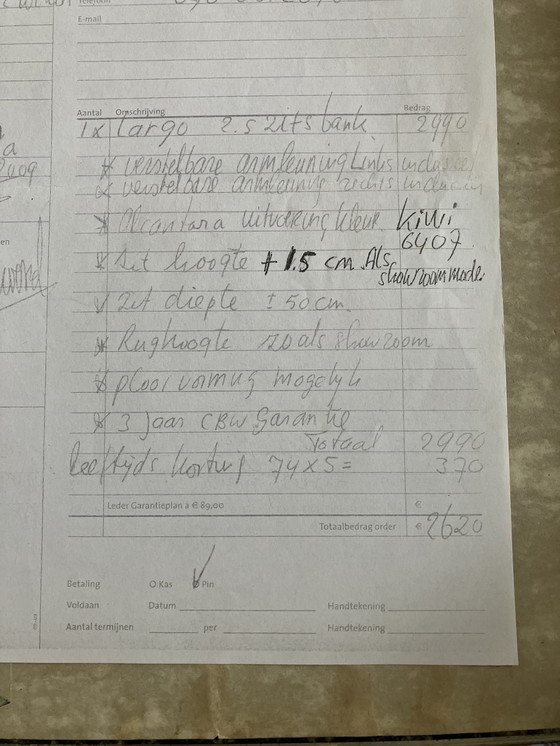 Telefoon
E-mail
Aantal Omschrijving Bedrag
1x Largo 2.5 zits bank 2990
* verstelbare armleuning Links
* verstelbare armleuning rechts
* Alcantara uitvoering kleur Kiwi
6407
* zit hoogte + 1.5 cm Als
showroommodel
zit diepte ± 50 cm.
* Rughoogte zoals showroom
* plooivorming mogelijk
* 3 Jaar CBW Garantie
Totaal 2990
leeftijds korting 74x5= 370
Leder Garantieplan à € 89,00 €
Totaalbedrag order € 2620
Betaling Kas Pin
Voldaan Datum Handtekening
Aantal termijnen per Handtekening